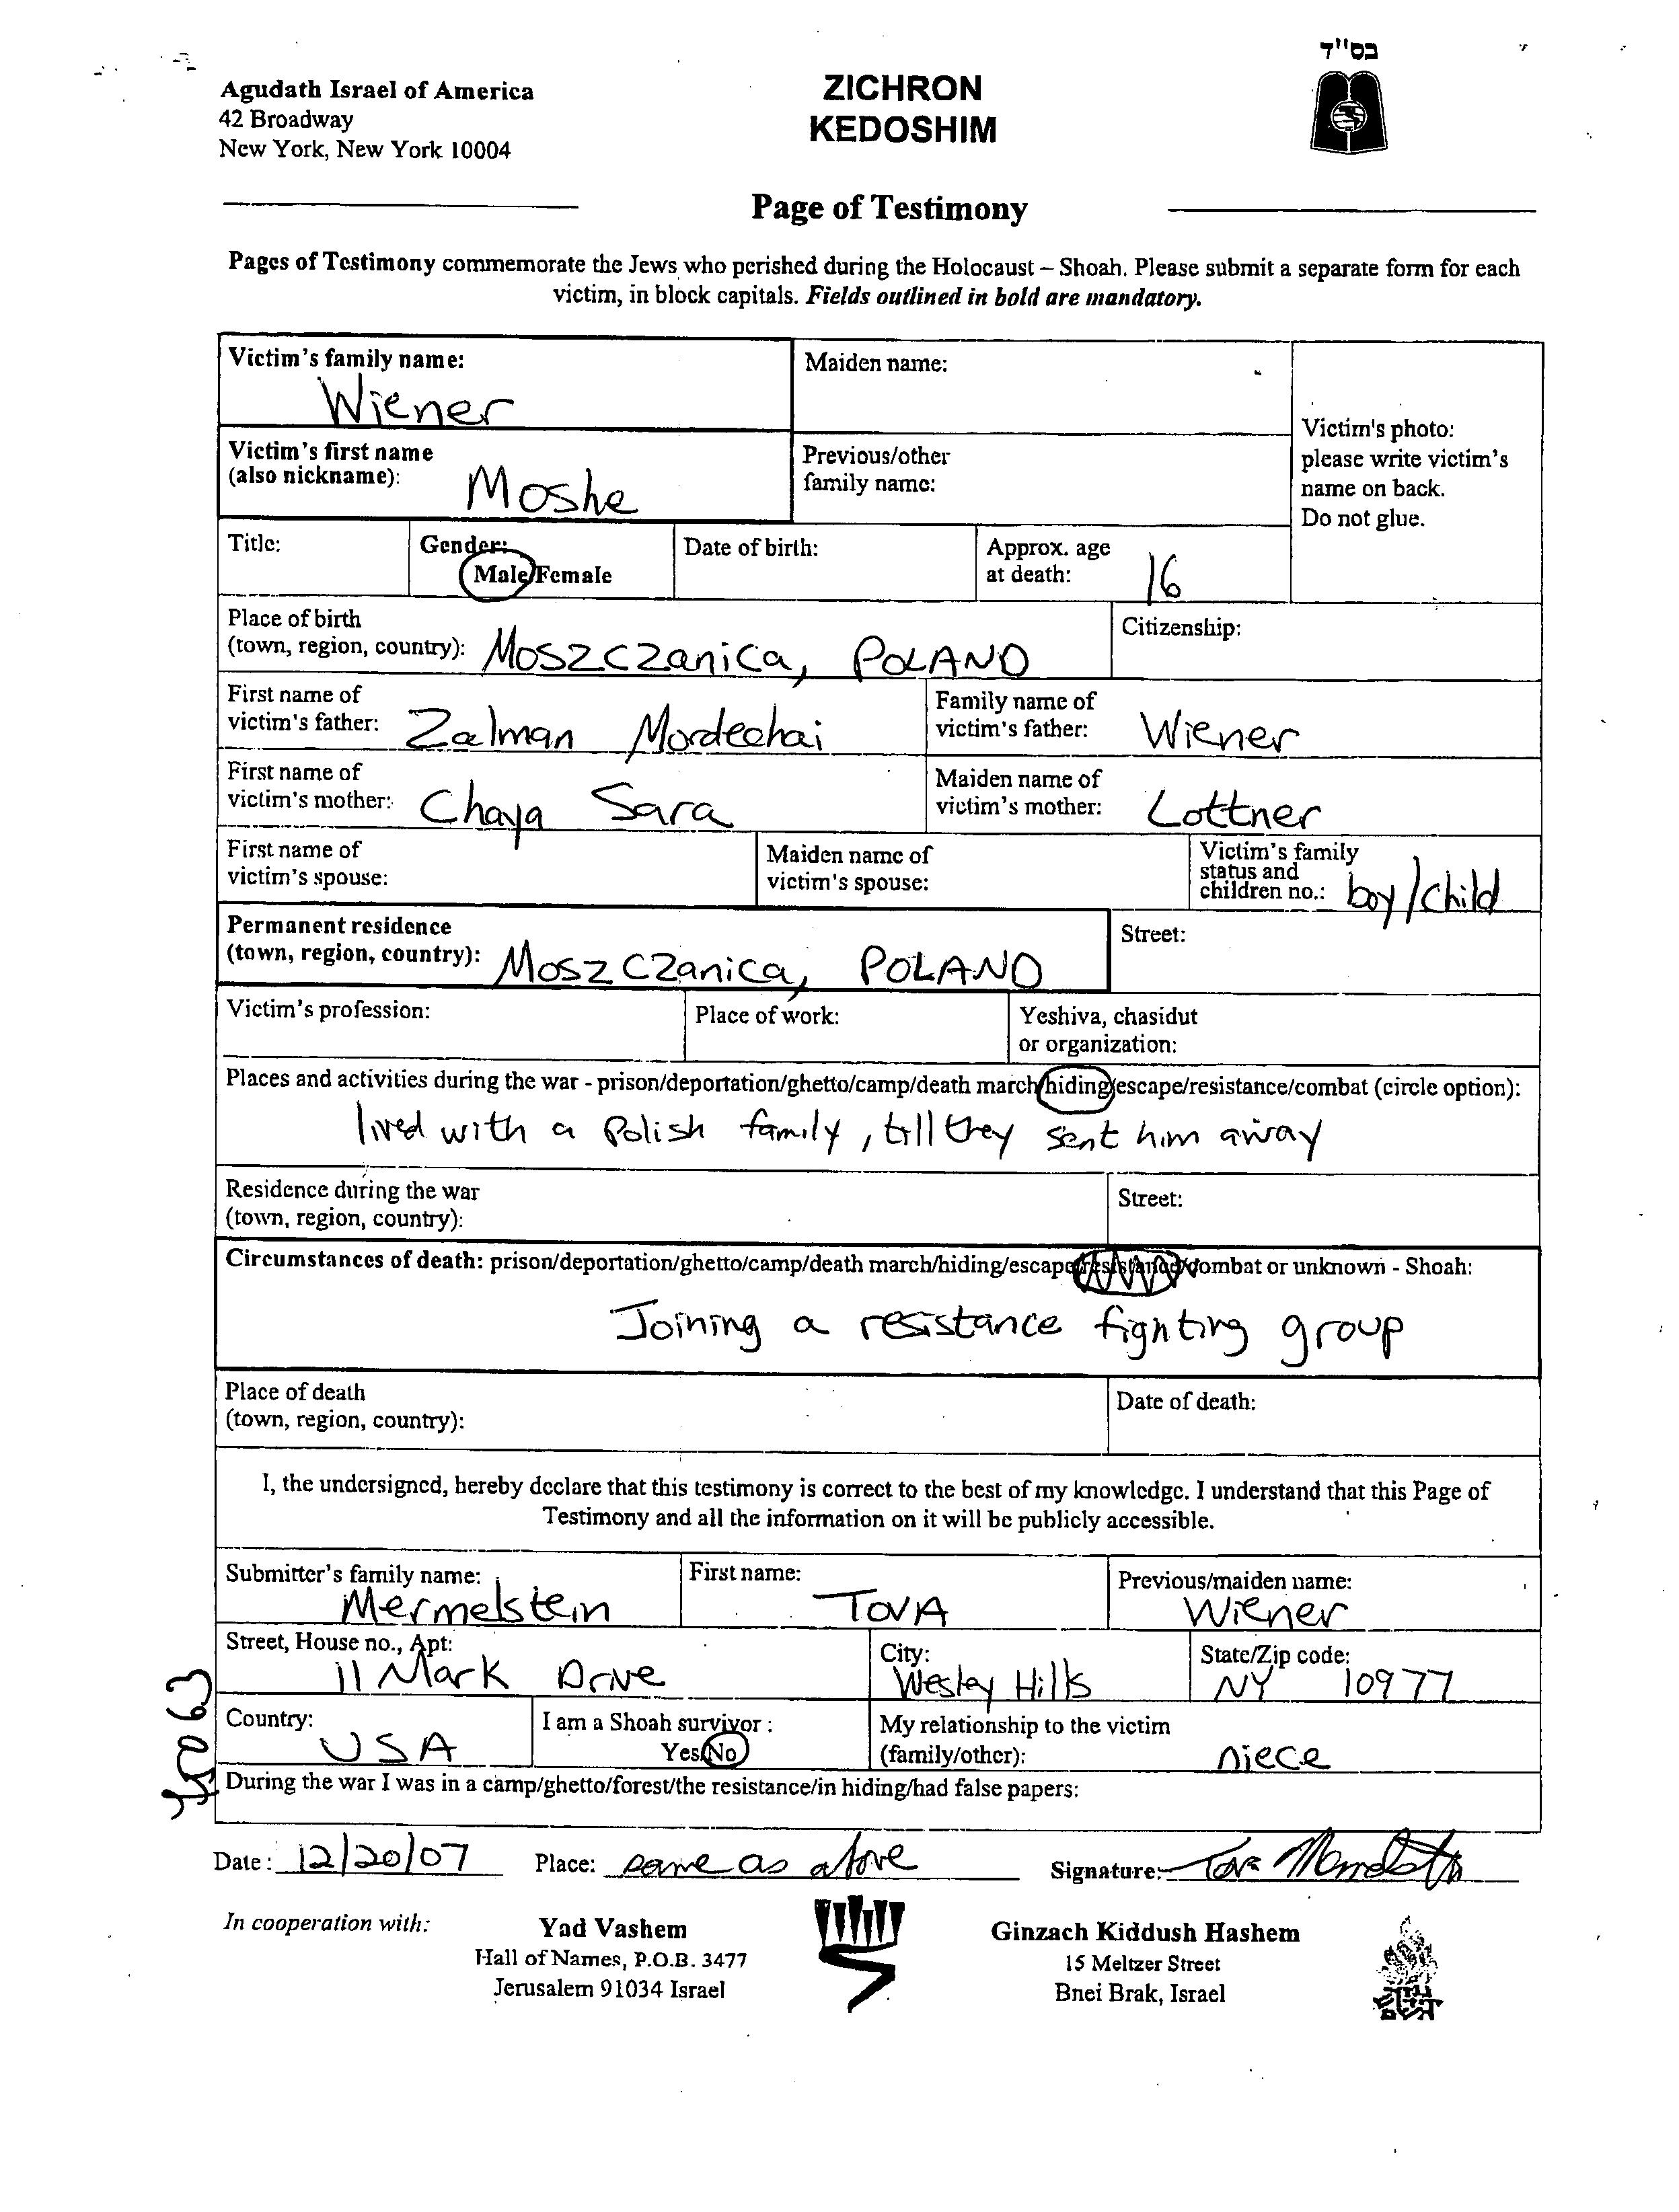 בס"ד
Agudath Israel of America
42 Broadway
New York, New York 10004
ZICHRON
KEDOSHIM
Page of Testimony
Pages of Testimony commemorate the Jews who perished during the Holocaust – Shoah. Please submit a separate form for each
victim, in block capitals. Fields outlined in bold are mandatory.
Victim's family name:
Wiener
Maiden name:
Victim's photo:
please write victim's
name on back.
Do not glue.
Victim's first name
(also nickname): Moshe
Previous/other
family name:
Title:
Gender:
Male/Female
Date of birth:
Approx. age
at death: 16
Place of birth
(town, region, country): Moszczanica, POLAND
Citizenship:
First name of
victim's father: Zalman Mordechai
Family name of
victim's father: Wiener
First name of
victim's mother: Chaya Sara
Maiden name of
victim's mother: Lottner
First name of
victim's spouse:
Maiden name of
victim's spouse:
Victim's family
status and
children no.: boy/child
Permanent residence
(town, region, country): Moszczanica, POLAND
Street:
Victim's profession:
Place of work:
Yeshiva, chasidut
or organization:
Places and activities during the war - prison/deportation/ghetto/camp/death march/hiding/escape/resistance/combat (circle option):
lived with a Polish family, till they sent him away
Residence during the war
(town, region, country):
Street:
Circumstances of death: prison/deportation/ghetto/camp/death march/hiding/escape/resistance/combat or unknown - Shoah:
Joining a resistance fighting group
Place of death
(town, region, country):
Date of death:
I, the undersigned, hereby declare that this testimony is correct to the best of my knowledge. I understand that this Page of
Testimony and all the information on it will be publicly accessible.
Submitter's family name:
Mermelstein
First name:
TOVA
Previous/maiden name:
Wiener
Street, House no., Apt:
11 Mark Drive
City:
Wesley Hills
State/Zip code:
NY 10977
Country:
USA
I am a Shoah survivor :
Yes/No
My relationship to the victim
(family/other): niece
During the war I was in a camp/ghetto/forest/the resistance/in hiding/had false papers:
Date: 12/20/07 Place: same as above Signature: Tova Mermelstein
In cooperation with:
Yad Vashem
Hall of Names, P.O.B. 3477
Jerusalem 91034 Israel
Ginzach Kiddush Hashem
15 Meltzer Street
Bnei Brak, Israel